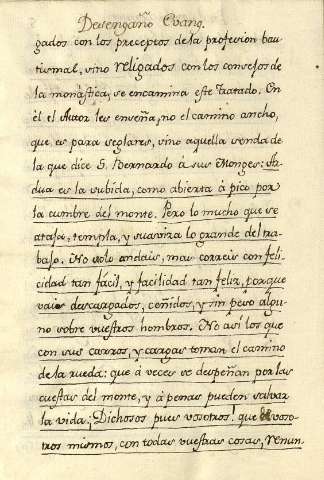 Desengaño Evang.
gados con los preceptos de la profesion bau-
tismal, sino religados con los consejos de
la monástica, se encamina este tratado. En
él el Autor les enseña, no el camino ancho,
que es para seglares, sino aquella senda de
la que dice S. Bernardo á sus Monges: Ar-
dua es la subida, como abierta á pico por
la cumbre del monte. Pero lo mucho que se
ataja, templa, y suaviza lo grande del tra-
bajo. No solo andais, mas correis con feli-
cidad tan fácil, y facilidad tan feliz, porque
vais descargados, ceñidos, y sin peso algu-
no sobre vuestros hombros. No asi los que
con sus carros, y cargas toman el camino
de la rueda: que á veces se despeñan por las
cuestas del monte, y á penas pueden salvar
la vida. ¡Dichosos pues vosotros! que á voso-
tros mismos, con todas vuestras cosas, renun-